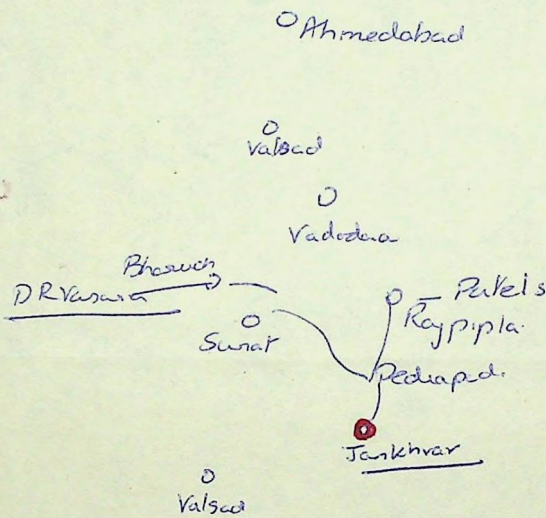 Ahmedabad
Valsad
Vadodaa
Bharuch
DR Vasava
Surat
Patels
Rajpipla
Pediapada
Jankhvar
Valsad